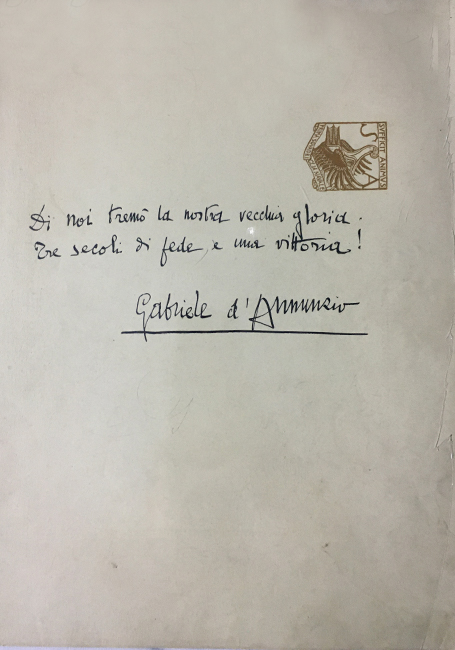 SVFFICIT ANIMVS
S A
Di noi tremò la nostra vecchia gloria.
Tre secoli di fede e una vittoria!
Gabriele d'Annunzio